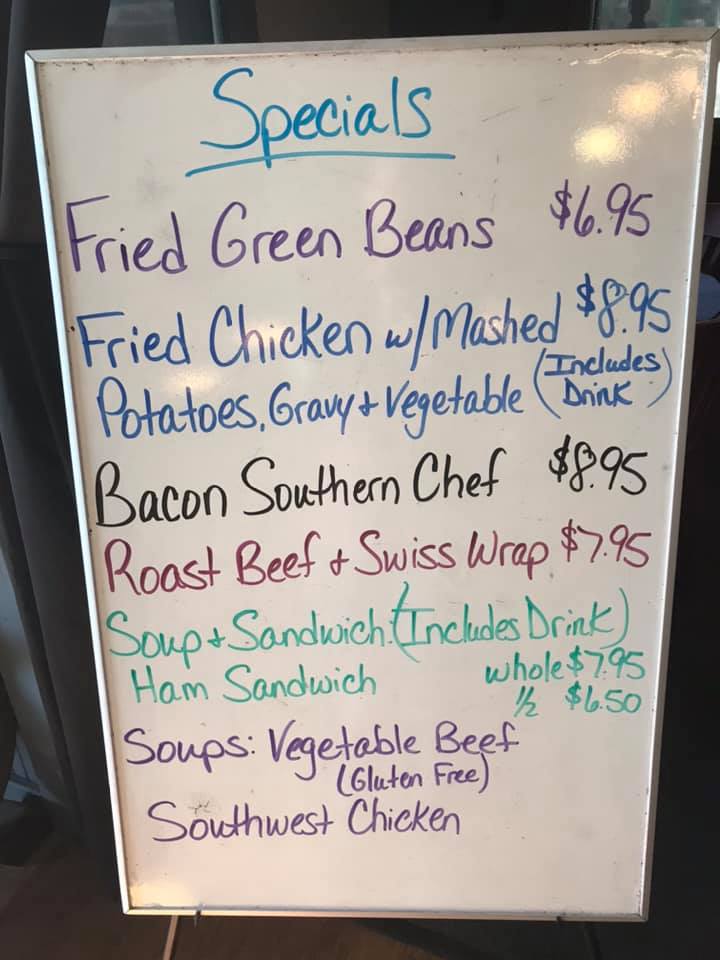 Specials
Fried Green Beans $6.95
Fried Chicken w/Mashed $8.95
Potatoes, Gravy + Vegetable (Includes Drink)
Bacon Southern Chef $8.95
Roast Beef + Swiss Wrap $7.95
Soup + Sandwich: (Includes Drink)
Ham Sandwich whole $7.95
½ $6.50
Soups: Vegetable Beef
(Gluten Free)
Southwest Chicken